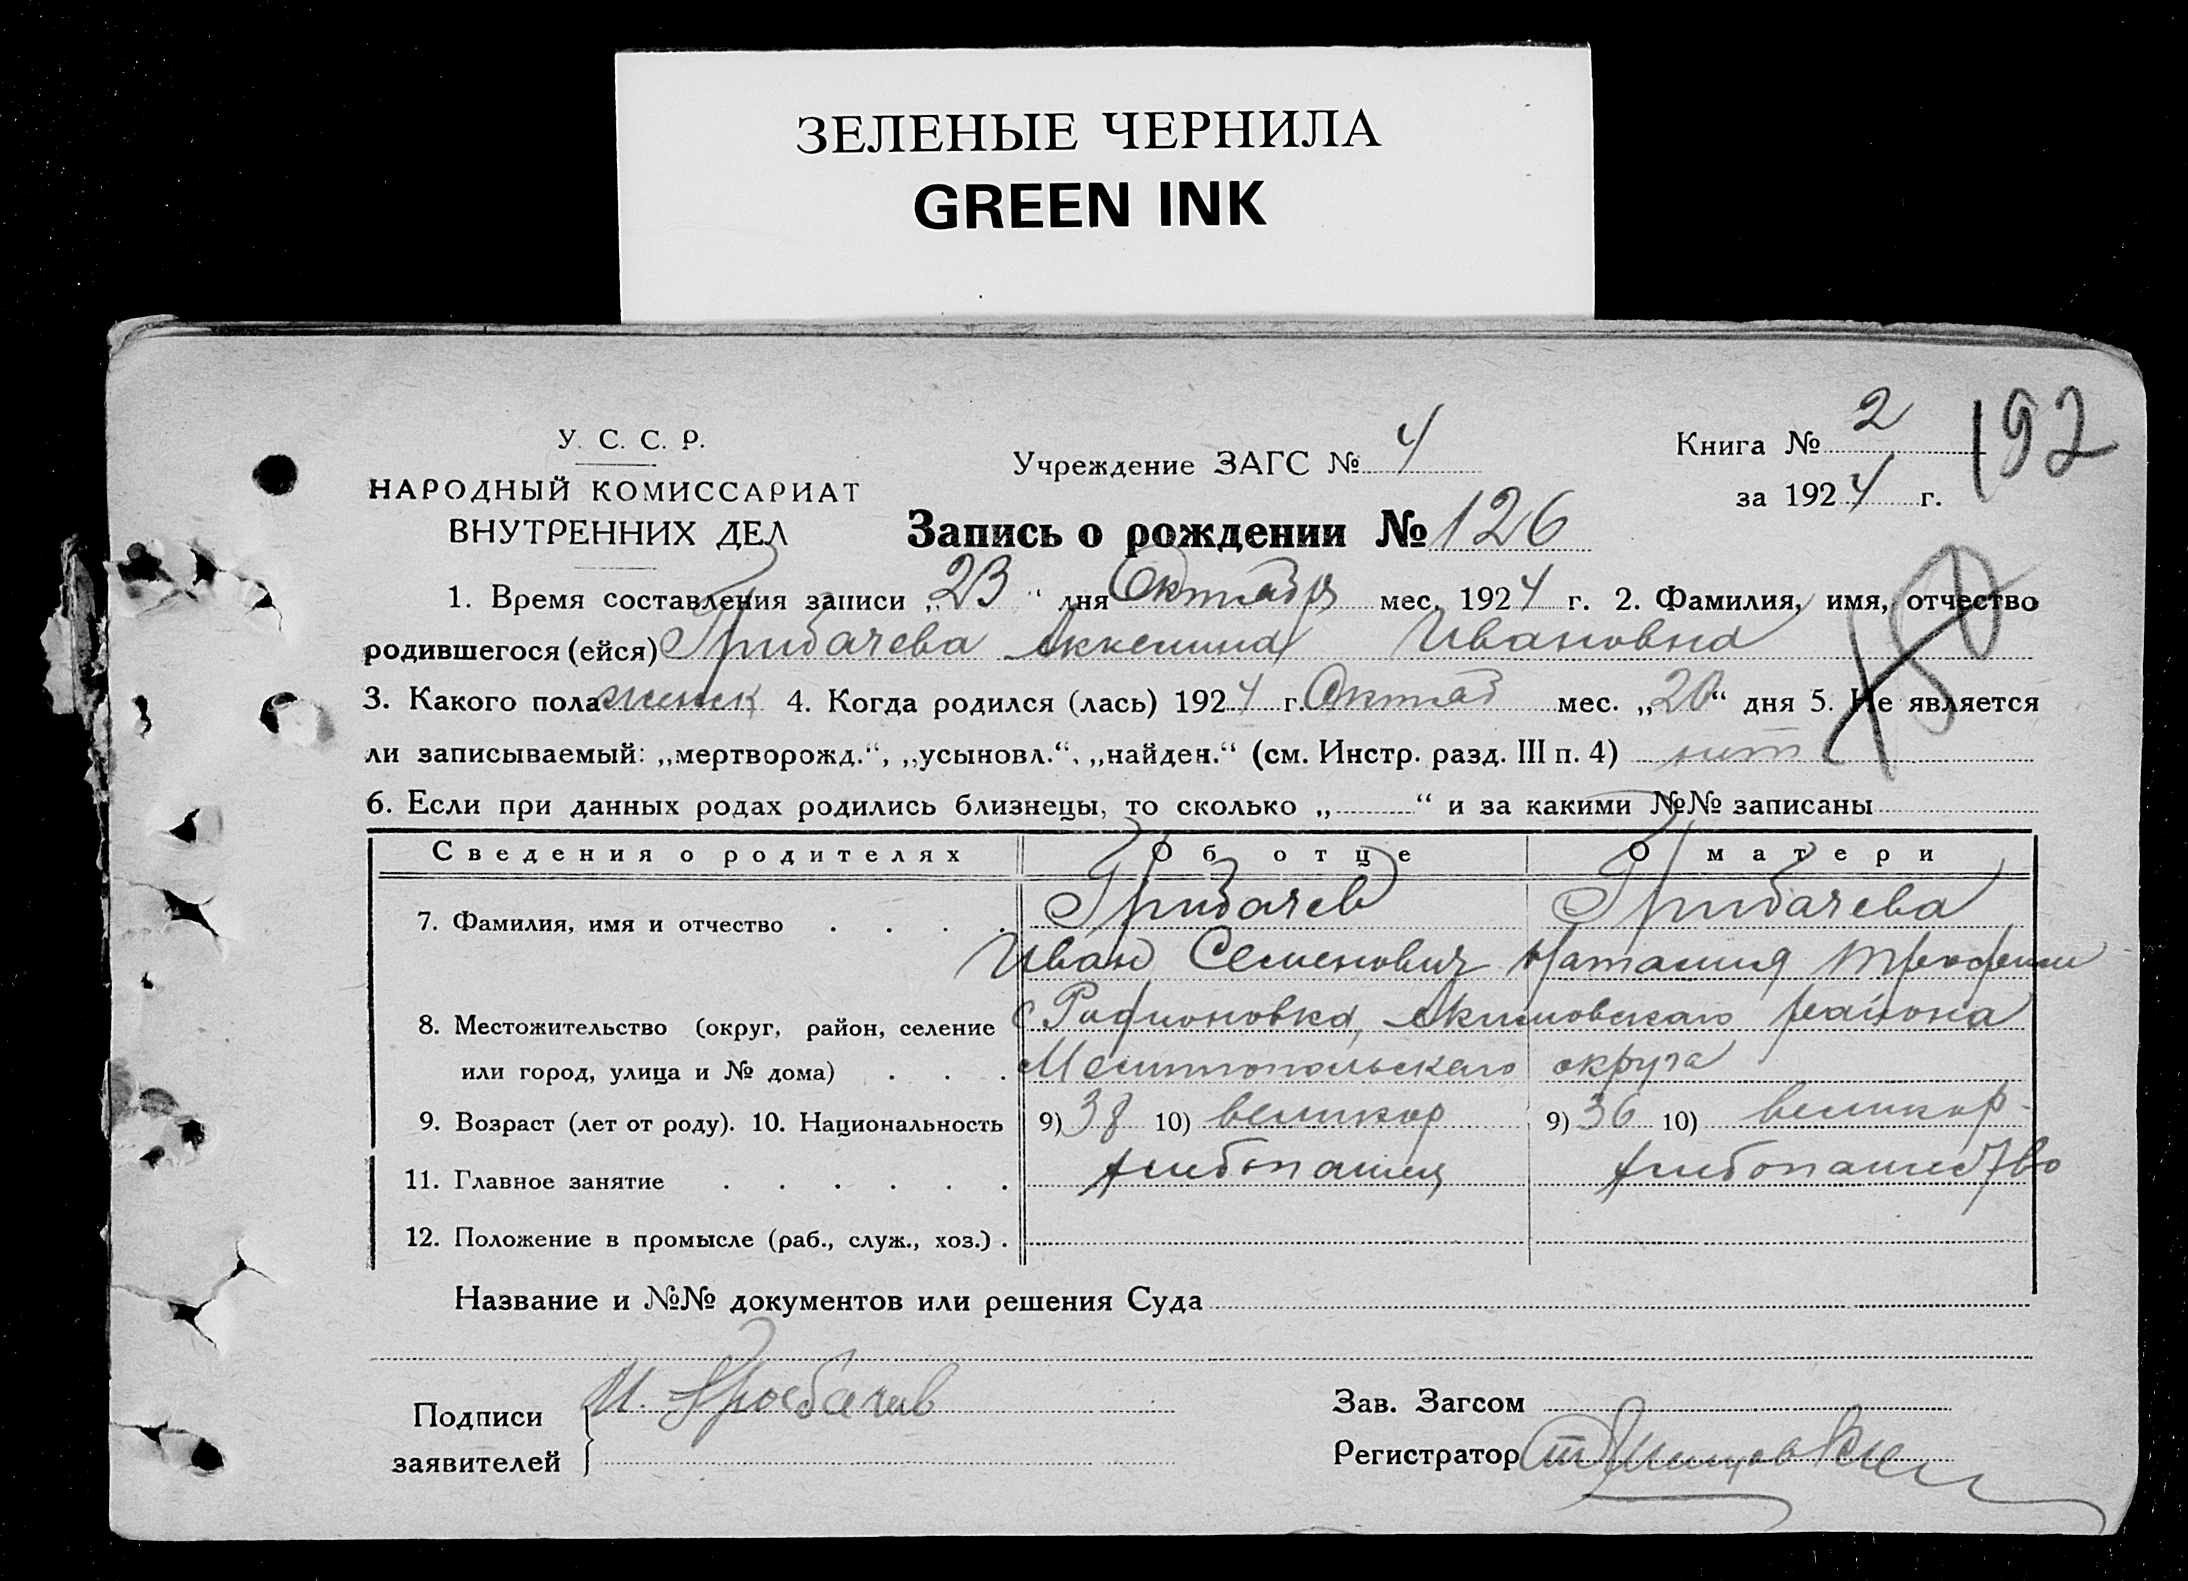 ЗЕЛЕНЫЕ ЧЕРНИЛА
GREEN INK
192
У. С. С. Р.
НАРОДНЫЙ КОМИССАРИАТ
ВНУТРЕННИХ ДЕЛ
Учреждение ЗАГС № 4
Книга № 2
за 1924 г.
Запись о рождении № 126
1. Время составления записи „23“ дня Октября мес. 1924 г. 2. Фамилия, имя, отчество
родившегося (ейся) Грибачева Аккелина Ивановна
3. Какого пола женск 4. Когда родился (лась) 1924 г. Октяб мес. „20“ дня 5. Не является
ли записываемый: „мертворожд.“, „усыновл.“, „найден.“ (см. Инстр. разд. III п. 4) нет
6. Если при данных родах родились близнецы, то сколько „ “ и за какими №№ записаны
Сведения о родителях Об отце О матери
7. Фамилия, имя и отчество . . . . Грибачев Грибачева
Иван Семенович Наталия
8. Местожительство (округ, район, селение с Родионовка, Акимовского района
или город, улица и № дома) . . . Мелитопольского округа
9. Возраст (лет от роду). 10. Национальность 9) 38 10) великор 9) 36 10) великор
11. Главное занятие . . . . . . хлебопашец хлебопашество
12. Положение в промысле (раб., служ., хоз.) .
Название и №№ документов или решения Суда
Подписи
заявителей
И. Грибачев
Зав. Загсом
Регистратор